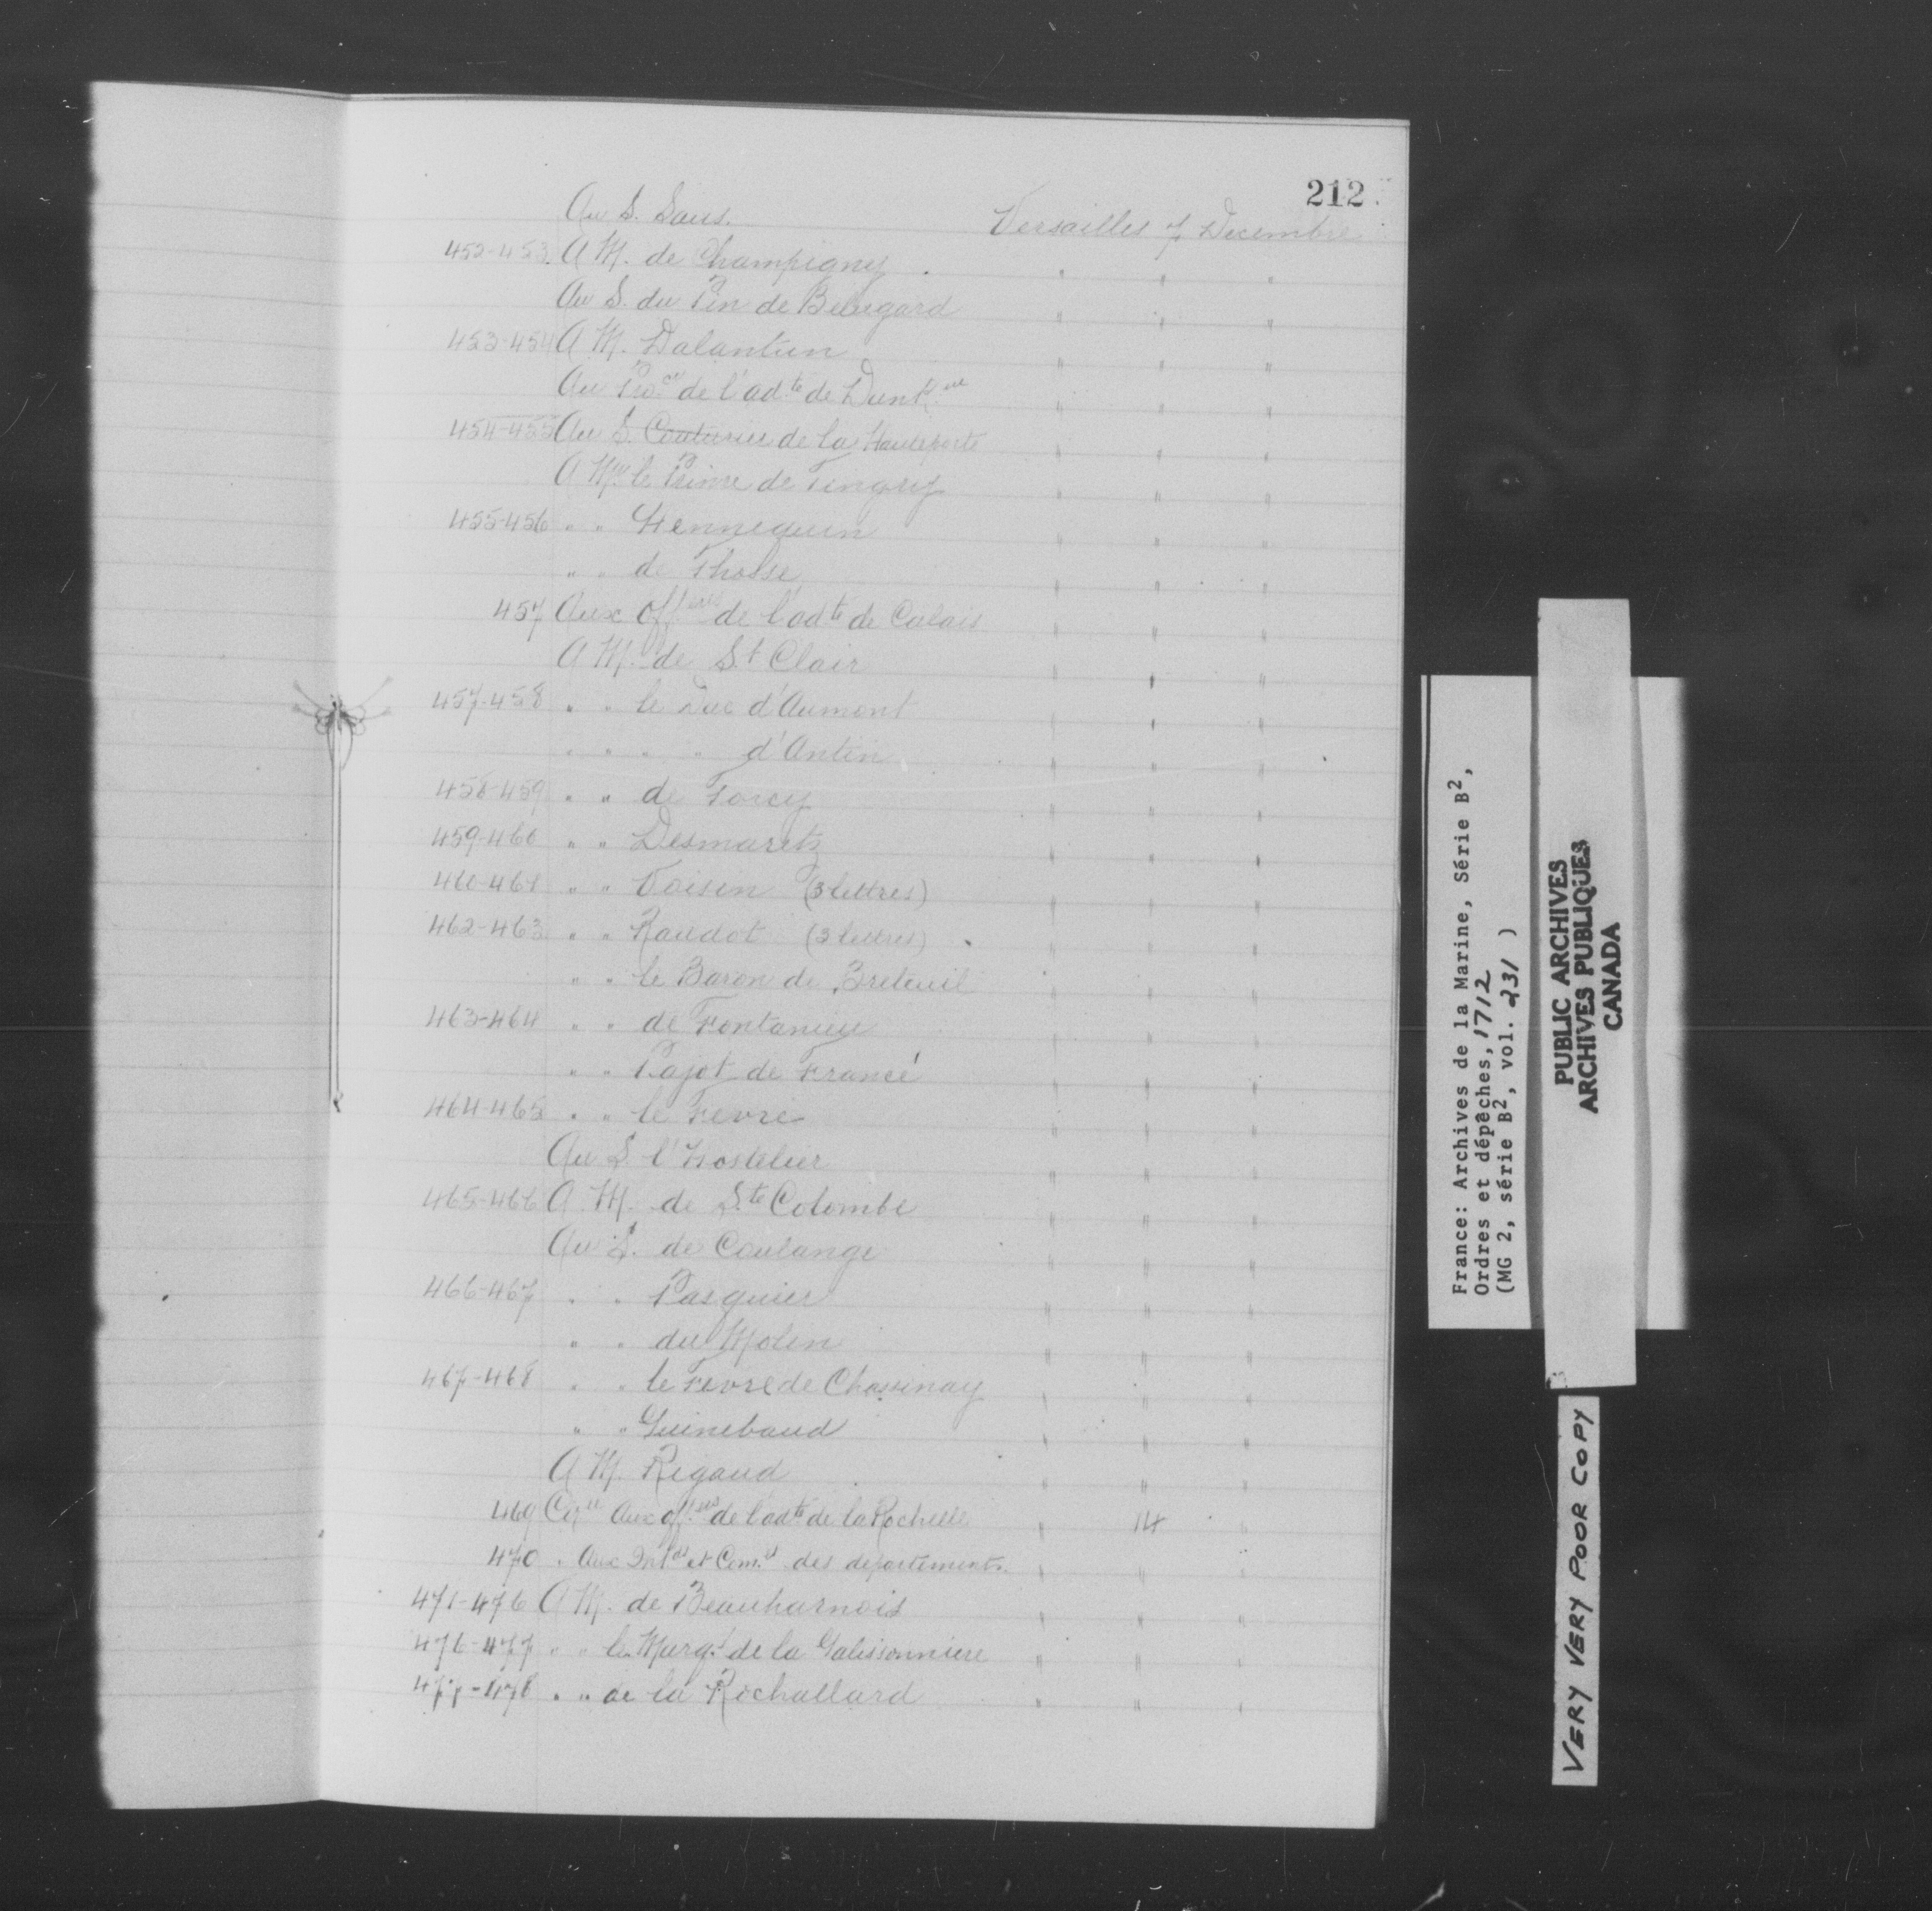 212
Au S. Saus. Versailles 7 Decembre
452-453. A M. de Champigny . " " "
Au S. du Pin de Belugard " " "
453-454 A M. Dalantun " " "
Au Pro.eur de l'ad.te de Dunk.que " " "
454-455 Au S. Couturier de la Hauteporte " " "
A Mr. le Prince de Tingry " " "
455-456 " " Hennequin " " "
" " de Thosse " " "
457 Aux Off.iers de l'ad.te de Calais " " "
A M. de St Clair " " "
457-458 " " le Duc d'Aumont " " "
" " " " d'Antin " " "
458-459 " " de Torcy " " "
459-460 " " Desmaretz " " "
460-461 " " Voisin (3 lettres) " " "
462-463 " " Raudot (3 lettres) . " " "
" " le Baron de Breteuil " " "
463-464 " " de Fontanieu " " "
" " Pajot de Francé " " "
464-465 " " le Fevre " " "
Au S. l'Hostelier " " "
465-466 A M. de Ste Colombe " " "
Au S. de Coulange " " "
466-467 " " Pasquier " " "
" " du Molin " " "
467-468 " " le Fevre de Chassinay " " "
" " Guinebaud " " "
A M. Rigaud " " "
469 Cire Aux off.ers de l'ad.te de la Rochelle " 14 "
470 " Aux Int.ds et Com.rs des departements. " " "
471-476 A M. de Beauharnois " " "
476-477 " " le Marq.s de la Galissonniere " " "
477-478 " " de la Rochallard " " "
France: Archives de la Marine, Série B2,
Ordres et dépêches, 1712
(MG 2, série B2, vol. 231 )
PUBLIC ARCHIVES
ARCHIVES PUBLIQUES
CANADA
VERY VERY POOR COPY